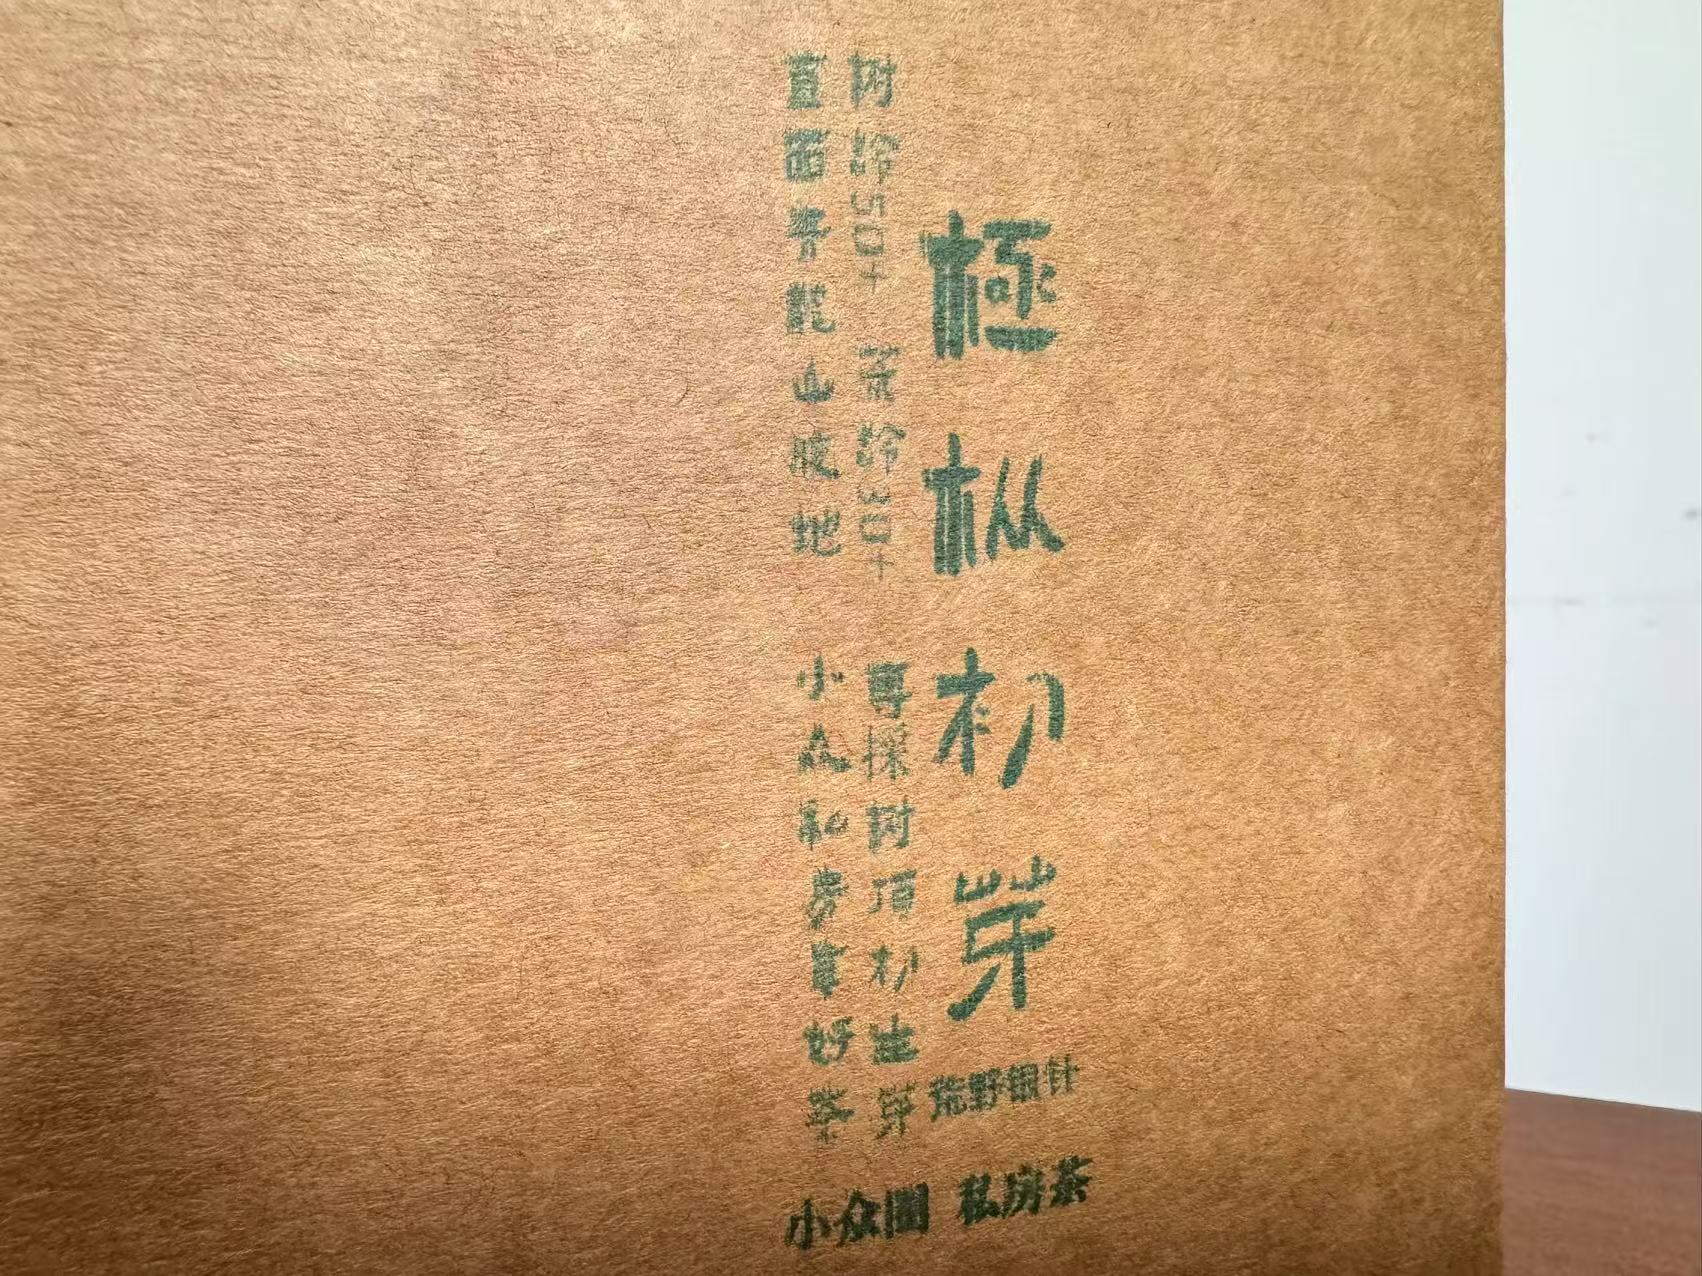 極枞初芽
荒野银针
树龄50+ 荒龄30+ 專採树顶初生芽
龍山腹地 小众私房 好茶
小众 私房茶